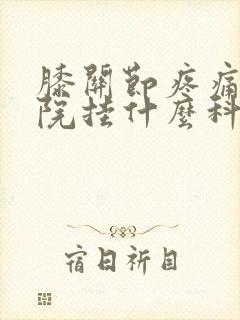 膝關節疼痛
院挂什麼科
宿日祈目